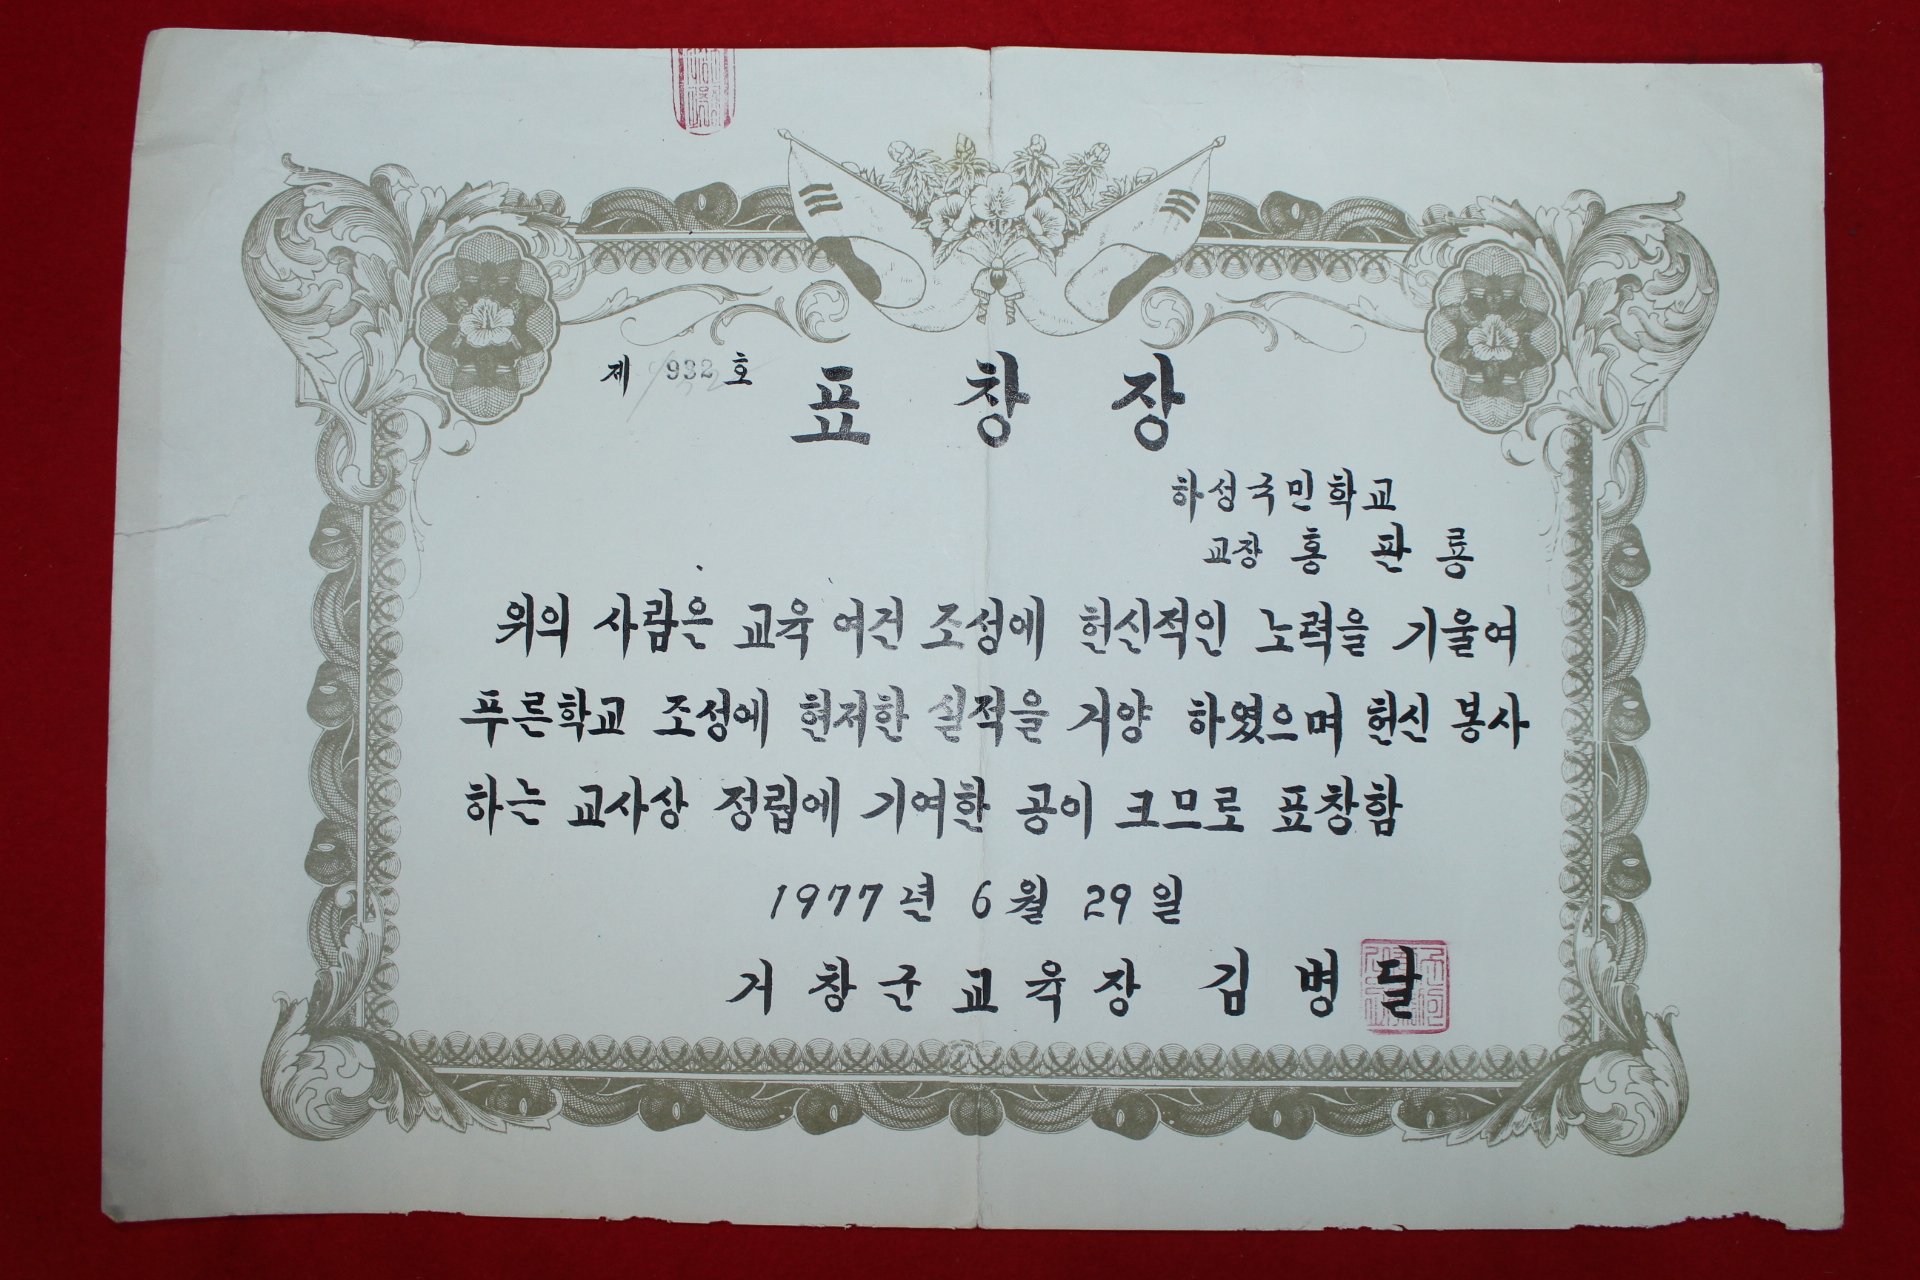 제 932 호
표 창 장
하성국민학교
교장 홍 판 룡
위의 사람은 교육 여건 조성에 헌신적인 노력을 기울여
푸른학교 조성에 현저한 실적을 거양 하였으며 헌신 봉사
하는 교사상 정립에 기여한 공이 크므로 표창함
1977년 6월 29일
거창군교육장 김 병 달